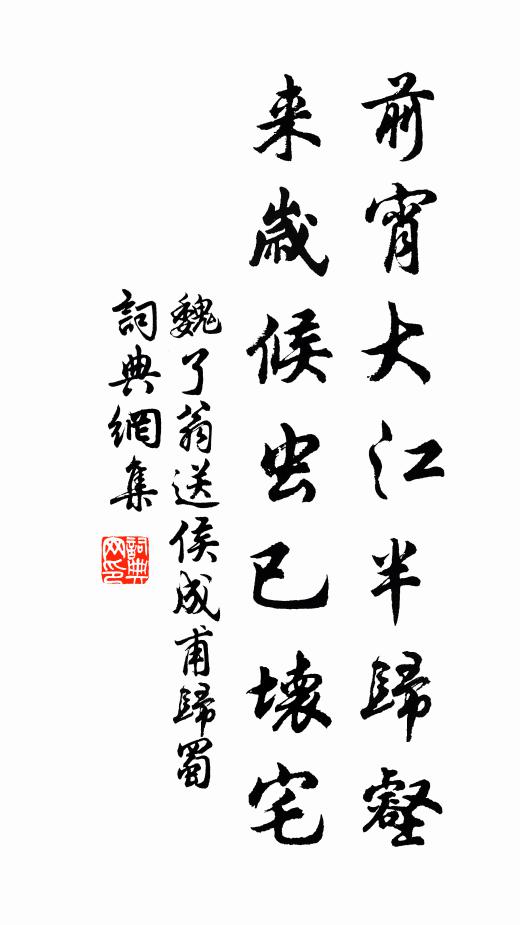 前宵大江半歸壑
来歲候虫已壞宅
魏了翁送侯成甫歸蜀
詞典網集
詞典
网印